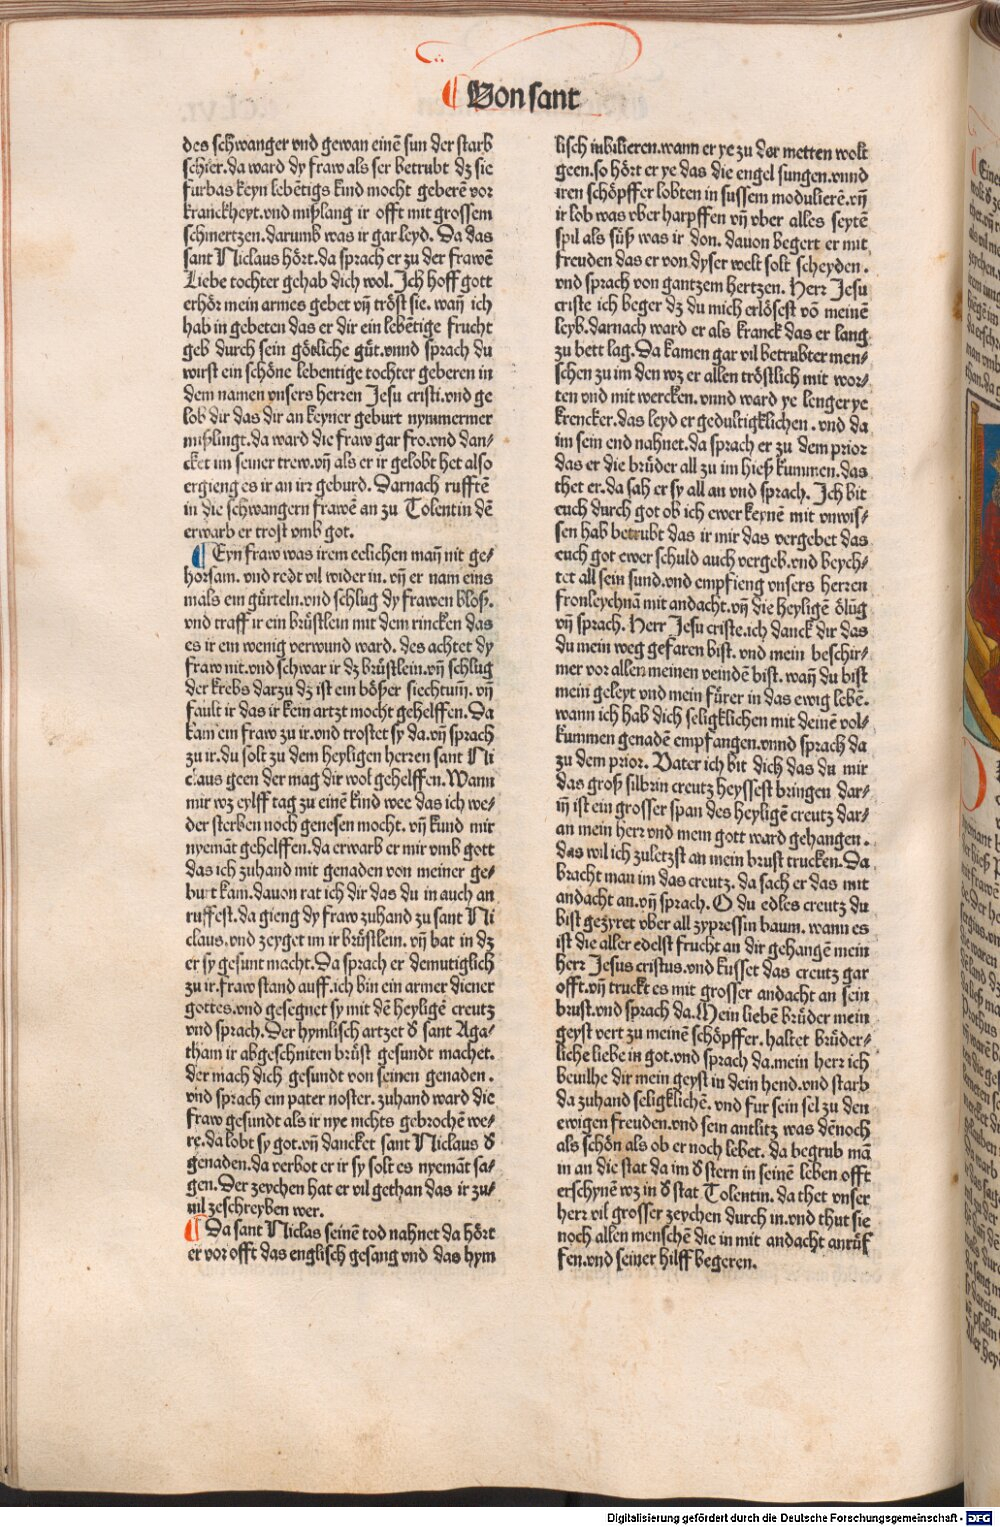 Von sant
des schwanger vnd gewan einē sun der starb
schier.da ward dy fraw als ser betrubt dz sie
furbas keyn lebētigs kind mocht geberē vor
kranckheyt.vnd mißlang ir offt mit grossem
schmertzen.darumb was ir gar leyd. Da das
sant Niclaus hört.da sprach er zu der frawē
Liebe tochter gehab dich wol. Ich hoff gott
erhör mein armes gebet vn̄ tröst sie. wan̄ ich
hab in gebeten das er dir ein lebētige frucht
geb durch sein götliche gu̇t.vnnd sprach du
wirst ein schöne lebentige tochter geberen in
dem namen vnsers herren Jesu cristi.vnd ge
lob dir das dir an keyner geburt nymmermer
mißlingt.da ward die fraw gar fro.vnd dan⸗
cket im seiner trew.vn̄ als er ir gelobt het also
ergieng es ir an irr geburd. Darnach rufftē
in die schwangern frawē an zu Tolentin dē
erwarb er trost vmb got.
Eyn fraw was irem eelichen man̄ nit ge⸗
horsam. vnd redt vil wider in. vn̄ er nam eins
mals ein gürteln.vnd schlug dy frawen bloß.
vnd traff ir ein brüstlein mit dem rincken das
es ir em wenig verwund ward. des achtet dy
fraw nit.vnd schwar ir dz brüstlein.vn̄ schlug
der krebs darzu dz ist ein bößer siechtum̄. vn̄
fault ir das ir kein artzt mocht gehelffen.Da
kam ein fraw zu ir.vnd trostet sy da.vn̄ sprach
zu ir.du solt zu dem heyligen herren sant Ni
claus geen der mag dir wol gehelffen.Wann
mir wz eylff tag zu einē kind wee das ich we⸗
der sterben noch genesen mocht. vn̄ kund mir
nyemāt gehelffen.da erwarb er mir vmb gott
das ich zuhand mit genaden von meiner ge⸗
burt kam.dauon rat ich dir das du in auch an
ruffest.da gieng dy fraw zuhand zu sant Ni
claus.vnd zeyget im ir brüstlein. vn̄ bat in dz
er sy gesunt macht.Da sprach er demutiglich
zu ir.fraw stand auff.ich bin ein armer diener
gottes.vnd gesegnet sy mit dē heyligē creutz
vnd sprach.Der hymlisch artzet ð sant Aga⸗
tham ir abgeschniten brüst gesundt machet.
der mach dich gesundt von seinen genaden.
vnd sprach ein pater noster. zuhand ward die
fraw gesundt als ir nye nichts gebrochē we⸗
re.da lobt sy got.vn̄ dancket sant Niclaus ð
genaden.da verbot er ir sy solt es nyemāt sa⸗
gen.Der zeychen hat er vil gethan das ir zu⸗
uil zeschreyben wer.
Da sant Niclas seinē tod nahnet da hört
er vor offt das englisch gesang vnd das hym
lisch iubilieren.wann er ye zu der metten wolt
geen.so hört er ye das die engel sungen.vnnd
iren schöpffer lobten in sussem modulierē.vn̄
ir lob was vber harpffen vn̄ vber alles seytē
spil als süß was ir don. dauon begert er mit
freuden das er von dyser welt solt scheyden.
vnd sprach von gantzem hertzen. Herr Jesu
criste ich beger dz du mich erlösest vō meinē
leyb.darnach ward er als kranck das er lang
zu bett lag.Da kamen gar vil betrubter men⸗
schen zu im den wz er allen tröstlich mit wor⸗
ten vnd mit wercken.vnnd ward ye lenger ye
krencker.das leyd er gedultigklichen.vnd da
im sein end nahnet.da sprach er zu dem prior
das er die brüder all zu im hieß kummen.das
thet er.da sah er sy all an vnd sprach. Ich bit
euch durch got ob ich ewer keynē mit vnwis⸗
sen hab betrubt das ir mir das vergebet das
euch got ewer schuld auch vergeb.vnd beych⸗
tet all sein sund.vnd empfieng vnsers herren
fronleychnā mit andacht.vn̄ die heyligē ölūg
vn̄ sprach. Herr Jesu criste.ich danck dir das
du mein weg gefaren bist. vnd mein beschir⸗
mer vor allen meinen veindē bist. wan̄ du bist
mein geleyt vnd mein fürer in das ewig lebē.
wann ich hab dich seligklichen mit deinē vol⸗
kummen genadē empfangen.vnnd sprach da
zu dem prior. Vater ich bit dich das du mir
das groß silbrin creutz heyssest bringen dar⸗
in̄ ist ein grosser span des heyligē creutz dar⸗
an mein herr vnd mein gott ward gehangen.
das wil ich zuletzst an mein brust trucken.Da
bracht man im das creutz. da sach er das mit
andacht an.vn̄ sprach. O du edles creutz du
bist gezyret vber all zypressin baum. wann es
ist die aller edelst frucht an dir gehangē mein
herr Jesus cristus.vnd kusset das creutz gar
offt.vn̄ truckt es mit grosser andacht an sein
brust.vnd sprach da.Mein liebē brüder mein
geyst vert zu meinē schöpffer.haltet brüder⸗
liche liebe in got.vnd sprach da.mein herr ich
beuilhe dir mein geyst in dein hend.vnd starb
da zuhand seligklichē. vnd fur sein sel zu den
ewigen freuden.vnd sein antlitz was dēnoch
als schön als ob er noch lebet. da begrub mā
in an die stat da im ð stern in seinē leben offt
erschynē wz in ð stat Tolentin. da thet vnser
herr vil grosser zeychen durch in.vnd thut sie
noch allen menschē die in mit andacht anrüf
fen.vnd seiner hilff begeren.
Digitalisierung gefördert durch die Deutsche Forschungsgemeinschaft - DFG